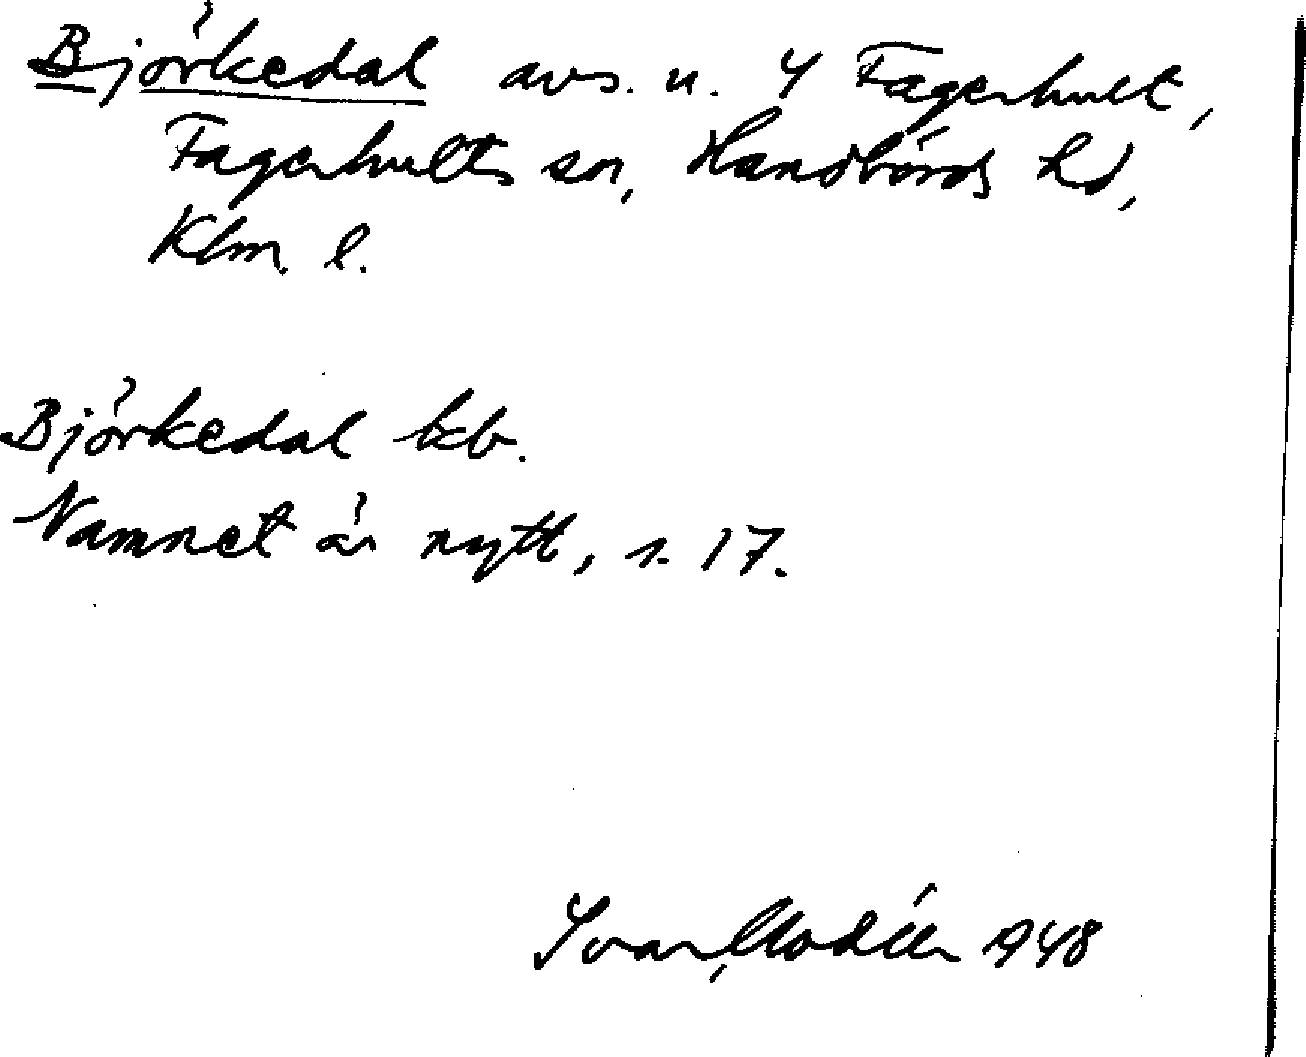 Björkedal avs. u. 4 Fagerhult,
Fagerhults sn, Handbörds hd,
Klm. l.
Björkedal kb.
Namnet är nytt, s. 17.
Ivar Modéer 1948